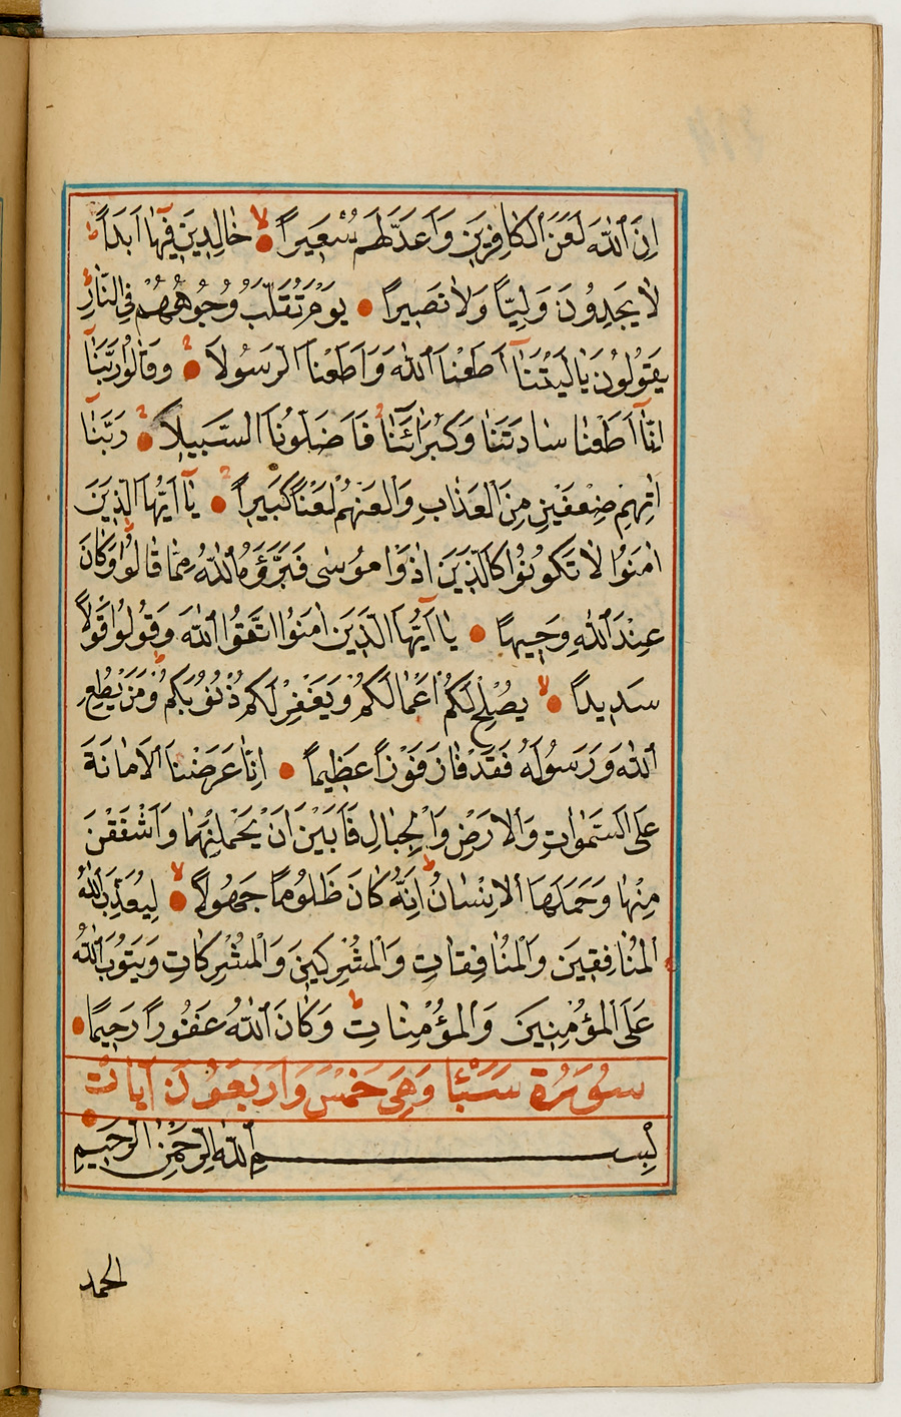 اِنَّ اللّٰهَ لَعَنَ الْكَافِرِينَ وَاَعَدَّ لَهُمْ سَعِيراً خَالِدِينَ فِيهَا اَبَداً
لَا يَجِدُونَ وَلِيّاً وَلَا نَصِيراً يَوْمَ تُقَلَّبُ وُجُوهُهُمْ فِي النَّارِ
يَقُولُونَ يَا لَيْتَنَا اَطَعْنَا اللّٰهَ وَاَطَعْنَا الرَّسُولَا وَقَالُوا رَبَّنَا
اِنَّا اَطَعْنَا سَادَتَنَا وَكُبَرَائَنَا فَاَضَلُّونَا السَّبِيلَا رَبَّنَا
اٰتِهِمْ ضِعْفَيْنِ مِنَ الْعَذَابِ وَالْعَنْهُمْ لَعْناً كَبِيراً يَا اَيُّهَا الَّذِينَ
اٰمَنُوا لَا تَكُونُوا كَالَّذِينَ اٰذَوْا مُوسٰى فَبَرَّاَهُ اللّٰهُ مِمَّا قَالُوا وَكَانَ
عِنْدَ اللّٰهِ وَجِيهاً يَا اَيُّهَا الَّذِينَ اٰمَنُوا اتَّقُوا اللّٰهَ وَقُولُوا قَوْلاً
سَدِيداً يُصْلِحْ لَكُمْ اَعْمَالَكُمْ وَيَغْفِرْ لَكُمْ ذُنُوبَكُمْ وَمَنْ يُطِعِ
اللّٰهَ وَرَسُولَهُ فَقَدْ فَازَ فَوْزاً عَظِيماً اِنَّا عَرَضْنَا الْاَمَانَةَ
عَلَى السَّمٰوَاتِ وَالْاَرْضِ وَالْجِبَالِ فَاَبَيْنَ اَنْ يَحْمِلْنَهَا وَاَشْفَقْنَ
مِنْهَا وَحَمَلَهَا الْاِنْسَانُ اِنَّهُ كَانَ ظَلُوماً جَهُولاً لِيُعَذِّبَ اللّٰهُ
الْمُنَافِقِينَ وَالْمُنَافِقَاتِ وَالْمُشْرِكِينَ وَالْمُشْرِكَاتِ وَيَتُوبَ اللّٰهُ
عَلَى الْمُؤْمِنِينَ وَالْمُؤْمِنَاتِ وَكَانَ اللّٰهُ غَفُوراً رَحِيماً
سُورَةُ سَبَأ وَهِيَ خَمْسَ وَاَرْبَعُونَ آيَات
بِسْمِ اللّٰهِ الرَّحْمٰنِ الرَّحِيمِ
الحمد